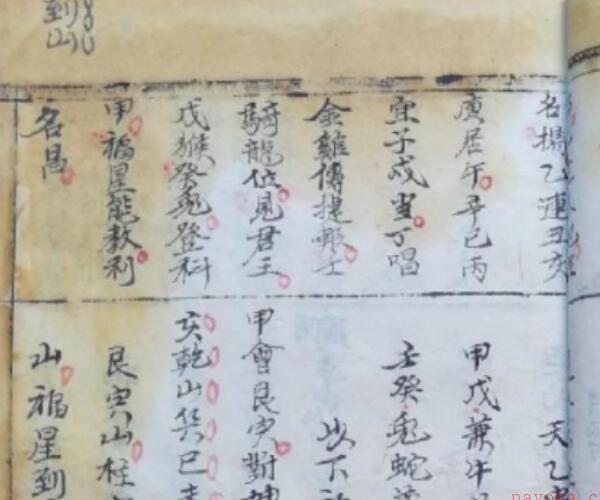 到山
名揚乙連丑亥
庚居午辛巳丙
宜子戌當丁唱
金雞傳提報壬
騎龍位見君王
戊猴癸兔登科
甲福星能教利
名昌
天乙
甲戊兼牛
壬癸兔蛇
以下
甲會艮寅對
亥乾山巽巳
艮寅山
山福星到
nayona.cn